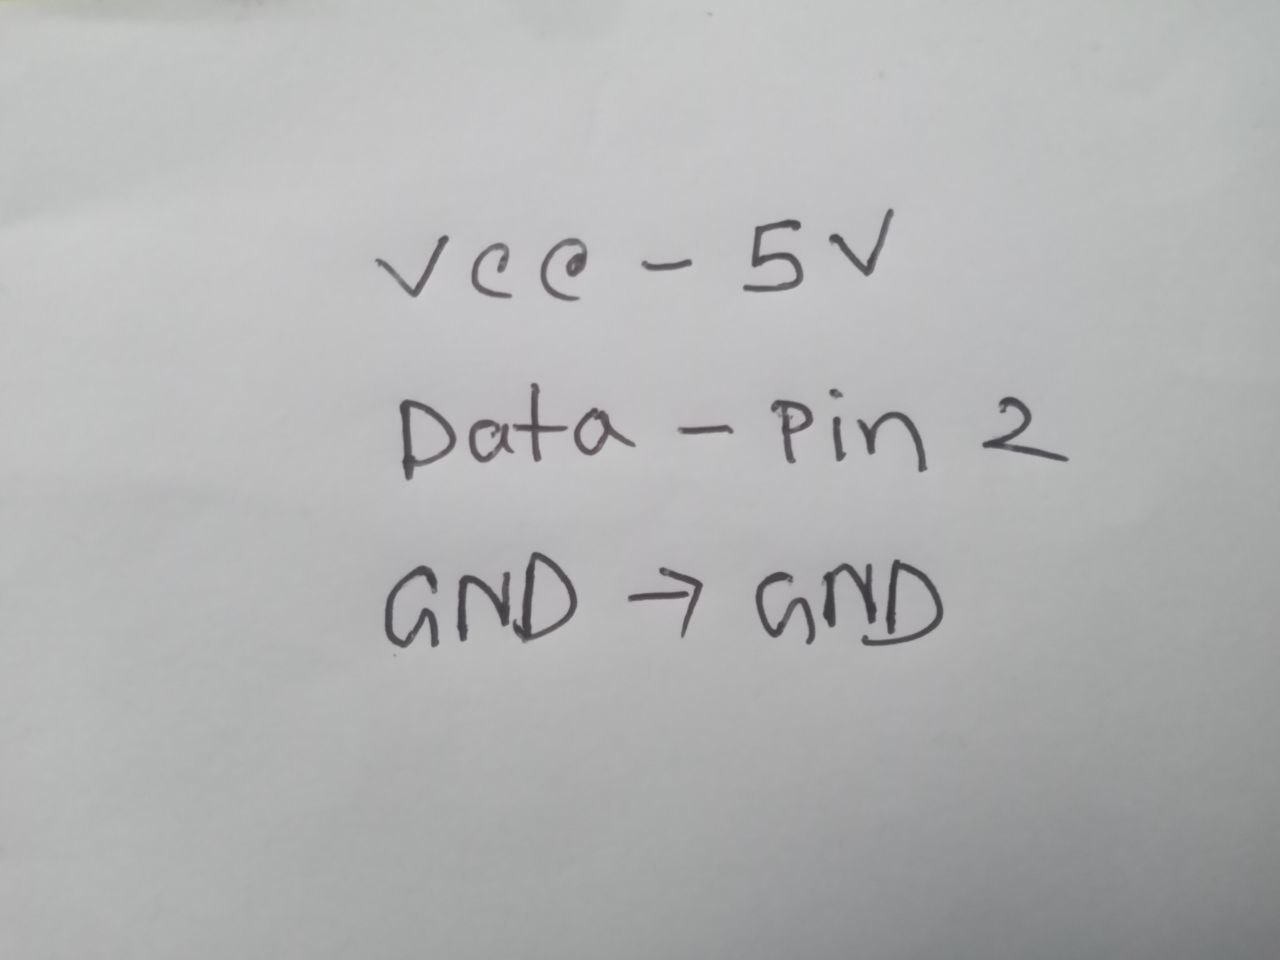 VCC - 5V
Data - Pin 2
GND → GND